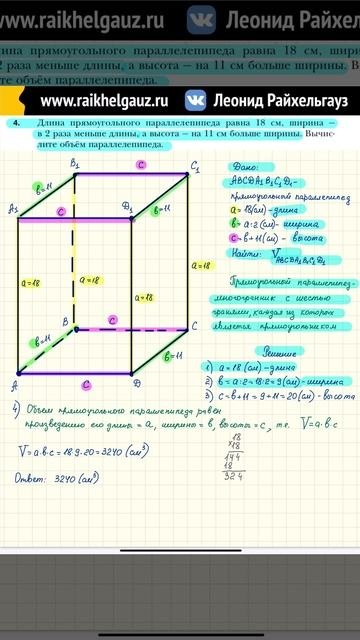 www.raikhelgauz.ru Леонид Райхельгауз
лина прямоугольного параллелепипеда равна 18 см, шири
2 раза меньше длины, а высота — на 11 см больше ширины. В
те объём параллелепипеда.
www.raikhelgauz.ru Леонид Райхельгауз
4. Длина прямоугольного параллелепипеда равна 18 см, ширина —
в 2 раза меньше длины, а высота — на 11 см больше ширины. Вычис-
лите объём параллелепипеда.
B₁ c C₁
b=11
A₁ c D₁ b=11
a=18 a=18 a=18 a=18
B c C
b=11 b=11
A c D
Дано:
ABCDA₁B₁C₁D₁-
прямоугольный параллелепипед
a=18(см)-длина
b=a:2(см)-ширина
c=b+11(см)-высота
Найти: V ABCDA₁B₁C₁D₁
Прямоугольный параллелепипед-
многогранник с шестью
гранями, каждая из которых
является прямоугольником
Решение
1) a=18(см)-длина
2) b=a:2=18:2=9(см)-ширина
3) c=b+11=9+11=20(см)-высота
4) Объём прямоугольного параллелепипеда равен
произведению его длины=a, ширины=b, высоты=c, т.е. V=a·b·c
V=a·b·c=18·9·20=3240(см³)
18
×18
144
18
324
Ответ: 3240(см³)
www.raikhelgauz.ru Леонид Райхельгауз